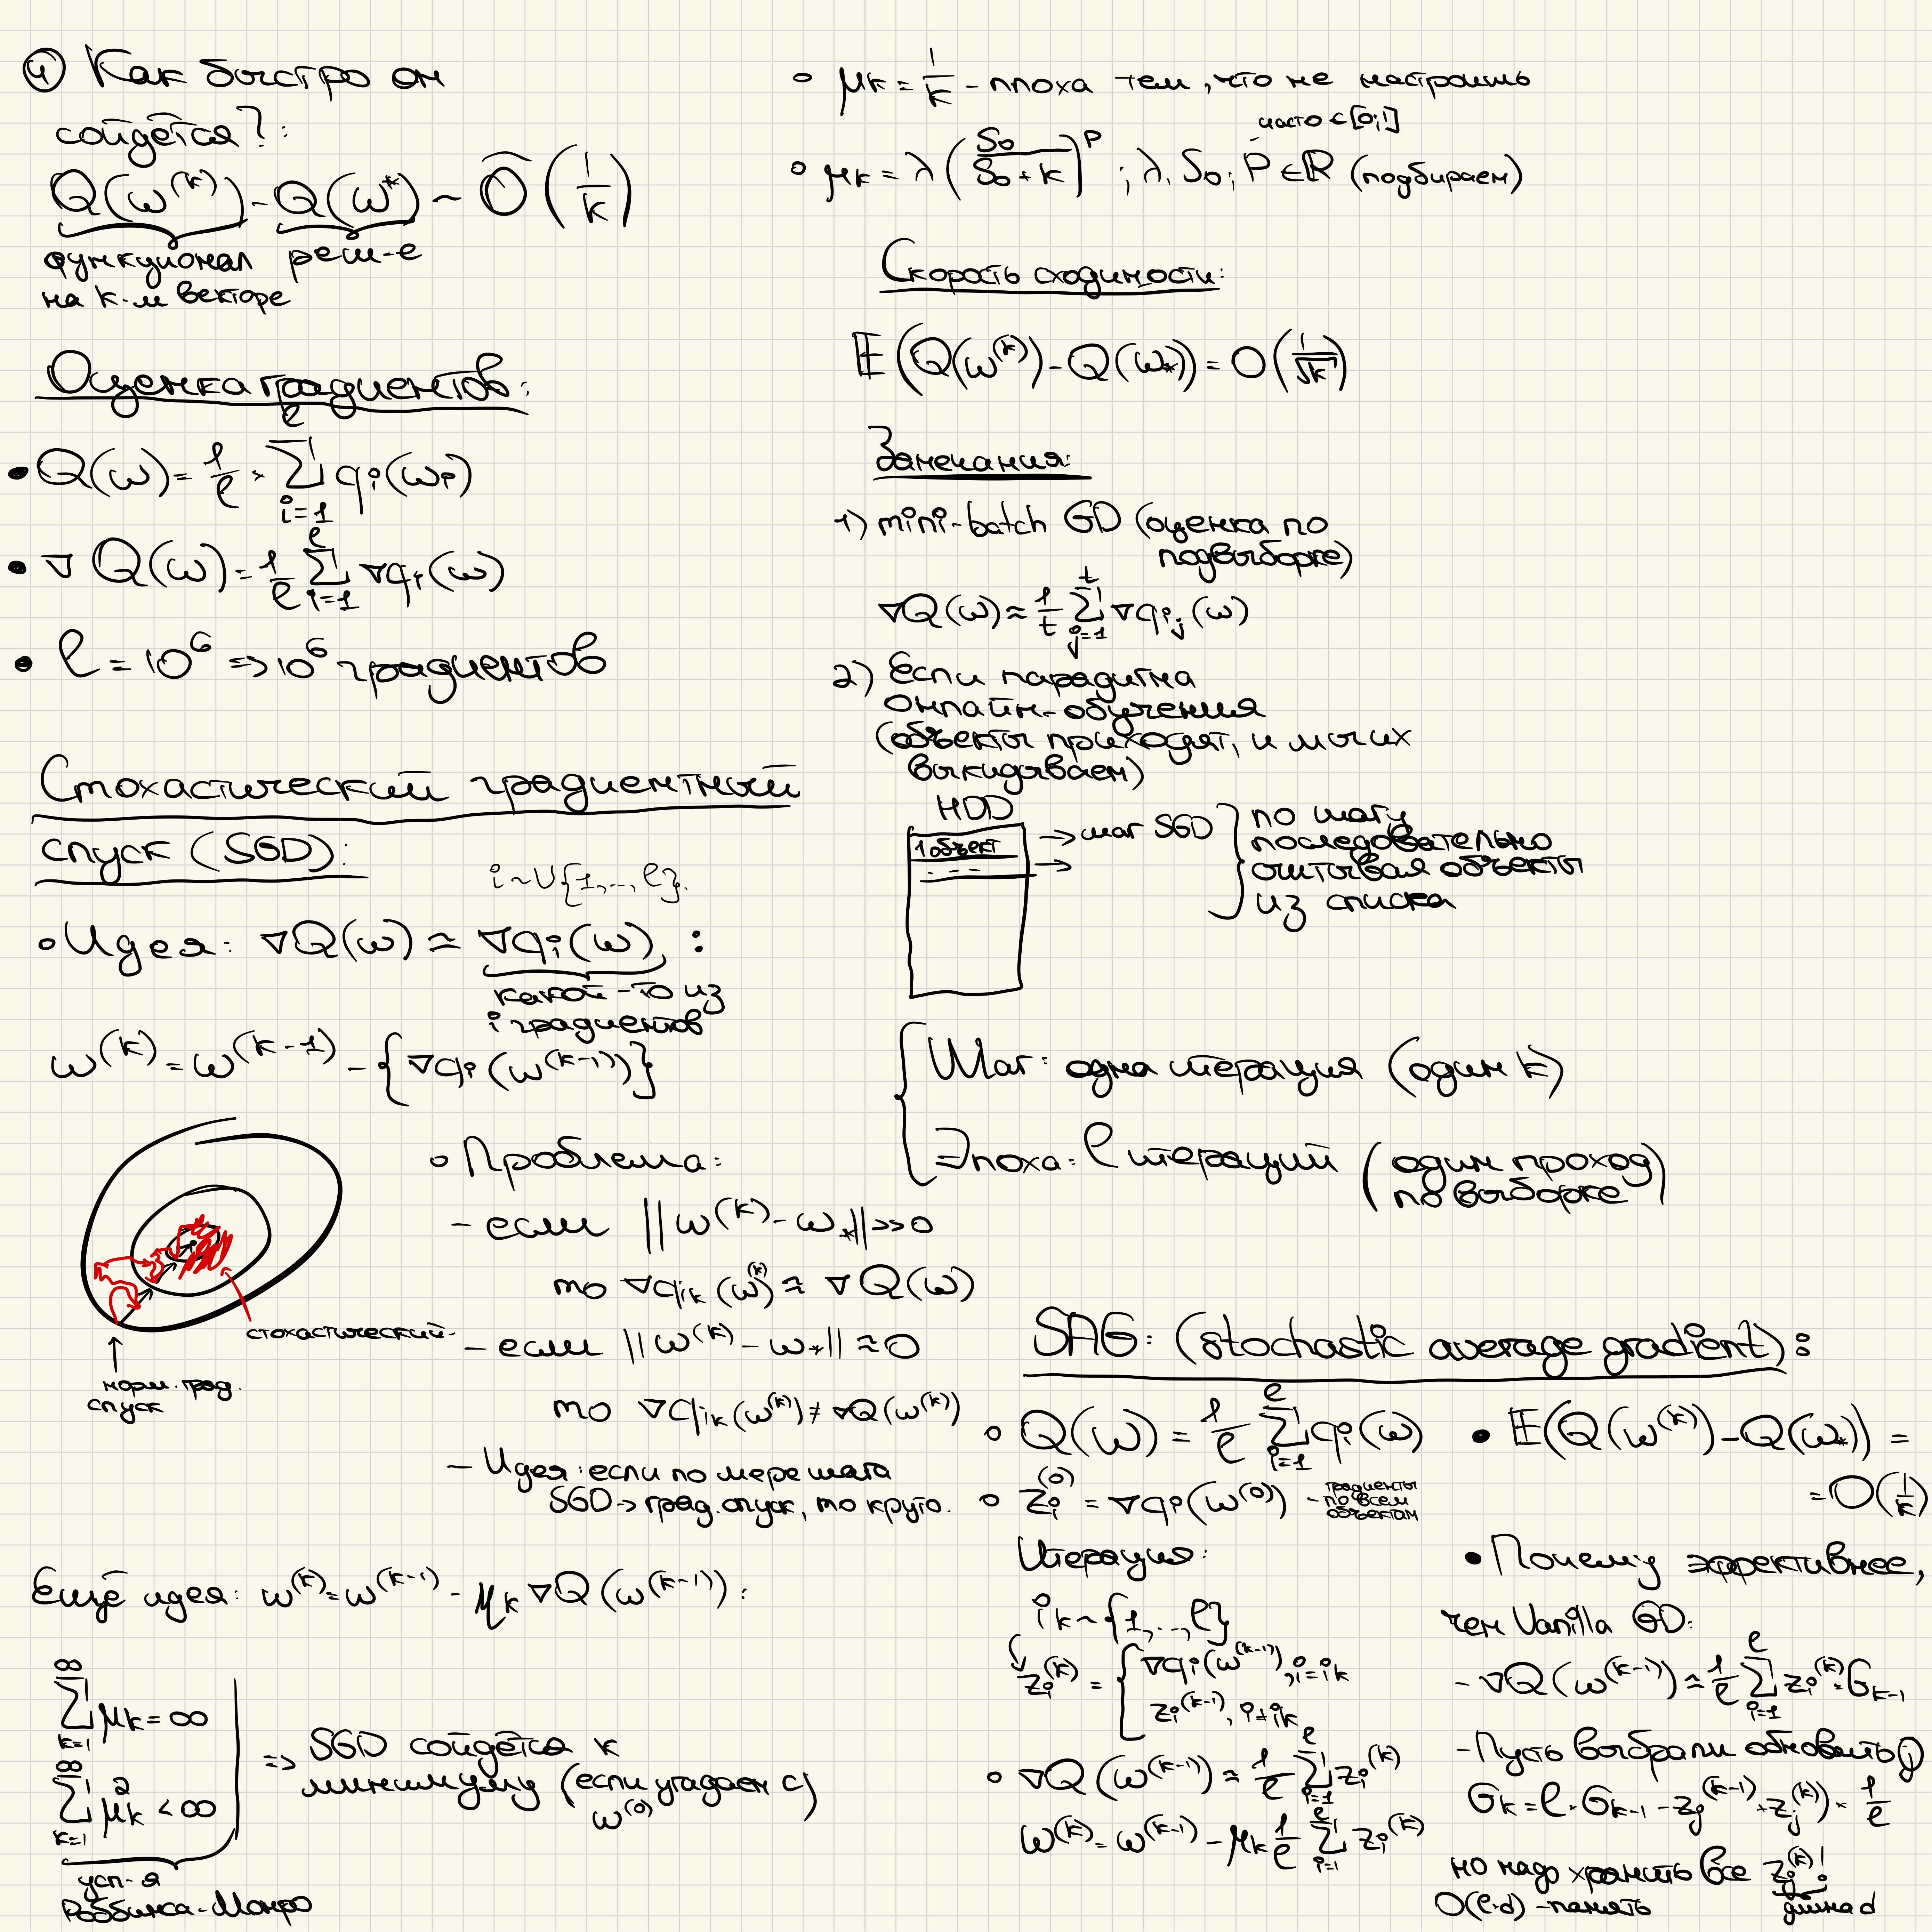 ④ Как быстро он
сойдётся?:
Q(ω^(k)) - Q(ω*) ~ O(1/k)
функционал реш-е
на k-м векторе
Оценка градиентов:
• Q(ω) = 1/ℓ · Σ_{i=1}^{ℓ} q_i(ω_i)
• ∇Q(ω) = 1/ℓ Σ_{i=1}^{ℓ} ∇q_i(ω)
• ℓ = 10^6 => 10^6 градиентов
Стохастический градиентный
спуск (SGD):
i ~ U{1,..., ℓ}.
∘ Идея: ∇Q(ω) ≈ ∇q_i(ω) :
какой-то из
i градиентов
ω^(k) = ω^(k-1) - {∇q_i(ω^(k-1))}
стохастический
↑
норм. град.
спуск
∘ Проблема:
- если ||ω^(k) - ω_*|| >> 0
то ∇q_{ik}(ω^(k)) ≈ ∇Q(ω)
- если ||ω^(k) - ω_*|| ≈ 0
то ∇q_{ik}(ω^(k)) ≠ ∇Q(ω^(k))
- Идея: если по мере шага
SGD → град. спуск, то круто.
Ещё идея: ω^(k) = ω^(k-1) - μ_k ∇Q(ω^(k-1)):
Σ_{k=1}^{∞} μ_k = ∞
Σ_{k=1}^{∞} μ_k^2 < ∞
=> SGD сойдётся к
минимуму (если угадаем с)
ω^(0)
усл-я
Роббинса-Монро
∘ μ_k = 1/k - плоха тем, что не настроишь
часто ∈ [0;1]
∘ μ_k = λ (S_0 / (S_0 + k))^P ; λ, S_0; P ∈ ℝ (подбираем)
Скорость сходимости:
𝔼(Q(ω^(k)) - Q(ω_*)) = O(1/√k)
Замечания:
1) mini-batch GD (оценка по
подвыборке)
∇Q(ω) ≈ 1/t Σ_{j=1}^{t} ∇q_{i_j}(ω)
2) Если парадигма
онлайн-обучения
(объекты приходят, и мы их
выкидываем)
HDD
1 объект
- - -
→ шаг SGD
→
по шагу
последовательно
считывая объекты
из списка
Шаг: одна итерация (один k)
Эпоха: ℓ итераций (один проход
по выборке)
SAG: (stochastic average gradient):
∘ Q(ω) = 1/ℓ Σ_{i=1}^{ℓ} q_i(ω)
∘ z_i^(0) = ∇q_i(ω^(0)) - градиенты
по всем
объектам
Итерация:
i_k ~ {1,..., ℓ}
z_i^(k) = { ∇q_i(ω^(k-1)), i = i_k
z_i^(k-1), i ≠ i_k
∘ ∇Q(ω^(k-1)) ≈ 1/ℓ Σ_{i=1}^{ℓ} z_i^(k)
ω^(k) = ω^(k-1) - μ_k 1/ℓ Σ_{i=1}^{ℓ} z_i^(k)
• 𝔼(Q(ω^(k)) - Q(ω_*)) =
= O(1/k)
• Почему эффективнее,
чем Vanilla GD:
- ∇Q(ω^(k-1)) ≈ 1/ℓ Σ_{i=1}^{ℓ} z_i^(k) = G_{k-1}
- Пусть выбрали обновить j
G_k = ℓ · G_{k-1} - z_j^(k-1) + z_j^(k)) · 1/ℓ
но надо хранить все z_i^(k)!
O(ℓ·d) - память
длина d